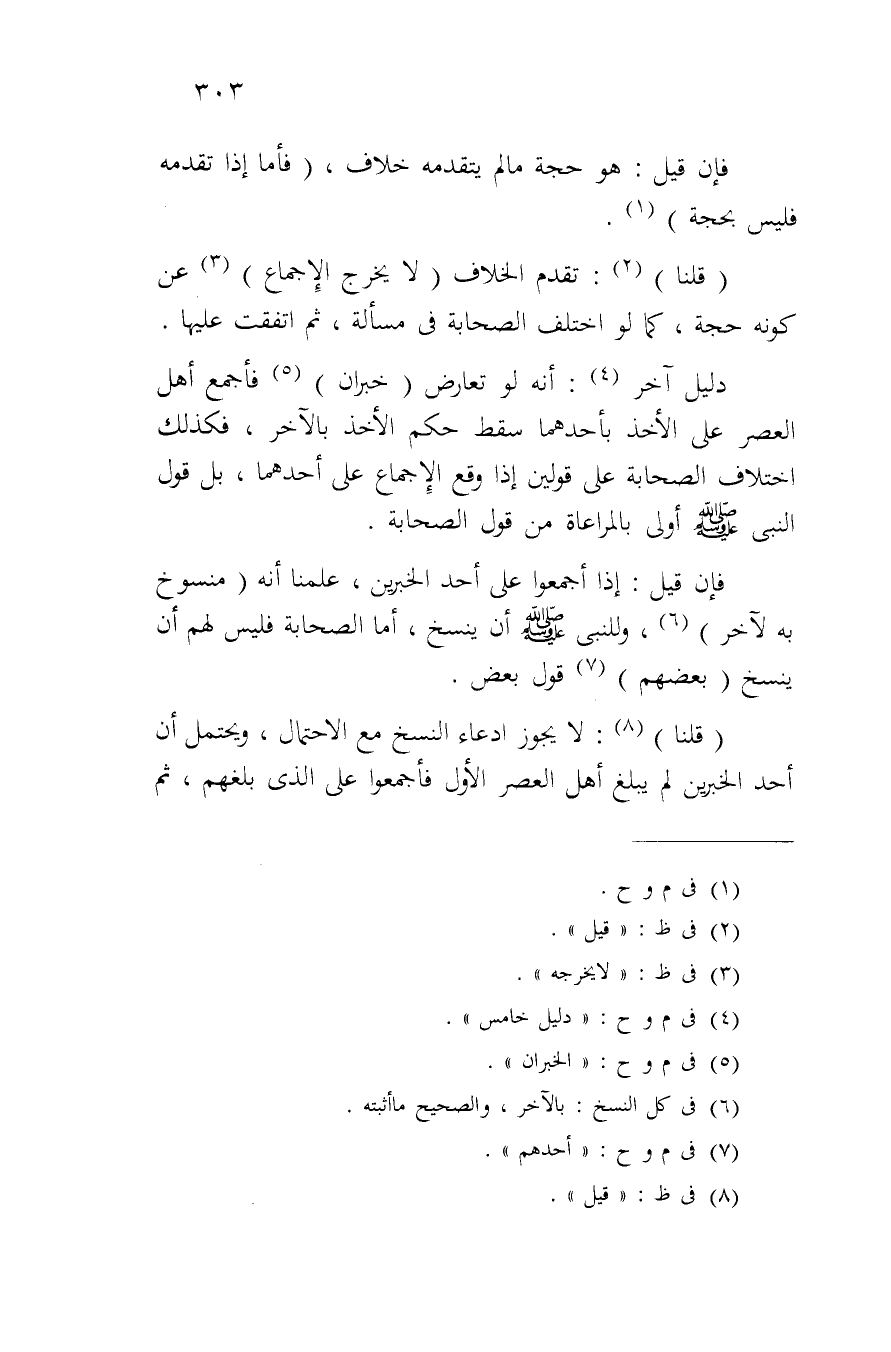 ٣٠٣
فإن قيل : هو حجة مالم يتقدمه خلاف ، ( فأما إذا تقدمه
فليس بحجة ) (١) .
( قلنا ) (٢) : تقدم الخلاف ( لا يخرج الإجماع ) (٣) عن
كونه حجة ، كما لو اختلف الصحابة فى مسألة ، ثم اتفقت عليها .
دليل آخر (٤) : أنه لو تعارض ( خبران ) (٥) فأجمع أهل
العصر على الأخذ بأحدهما سقط حكم الأخذ بالآخر ، فكذلك
اختلاف الصحابة على قولين إذا وقع الإجماع على أحدهما ، بل قول
النبى ﷺ أولى بالمراعاة من قول الصحابة .
فإن قيل : إذا أجمعوا على أحد الخبرين ، علمنا أنه ( منسوخ
به لآخر ) (٦) ، وللنبى ﷺ أن ينسخ ، أما الصحابة فليس لهم أن
ينسخ ( بعضهم ) (٧) قول بعض .
( قلنا ) (٨) : لا يجوز ادعاء النسخ مع الاحتمال ، ويحتمل أن
أحد الخبرين لم يبلغ أهل العصر الأول فأجمعوا على الذى بلغهم ، ثم
(١) فى م و ح .
(٢) فى ظ : « قيل » .
(٣) فى ظ : « لايخرجه » .
(٤) فى م و ح : « دليل خامس » .
(٥) فى م و ح : « الخبران » .
(٦) فى كل النسخ : بالآخر ، والصحيح ماأثبته .
(٧) فى م و ح : « أحدهم » .
(٨) فى ظ : « قيل » .